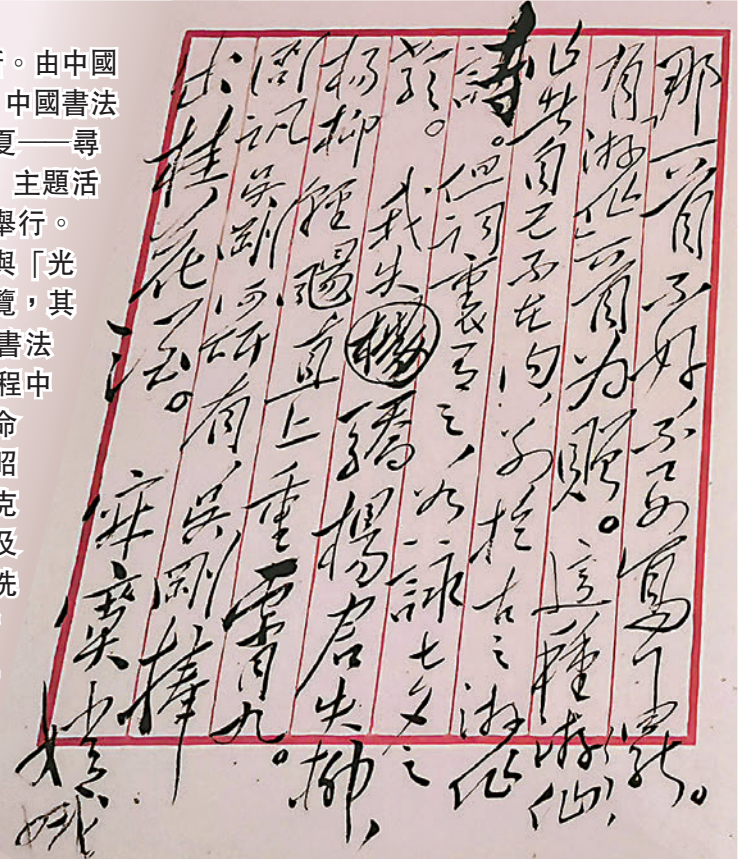 。由中國
中國書法
夏——尋
主題活
舉行。
與「光
覽，其
書法
程中
命
昭
克
及
洗
那一首不好，不要寫了罷。
有「游仙」一首为贈。這種游仙，
作者自己不在内，别於古之游仙
詩。但詞裏有之，如詠七夕之
類。 我失驕楊君失柳，
楊柳輕颺直上重霄九。
問訊吳剛何所有，吳剛捧
出桂花酒。 寂寞嫦娥